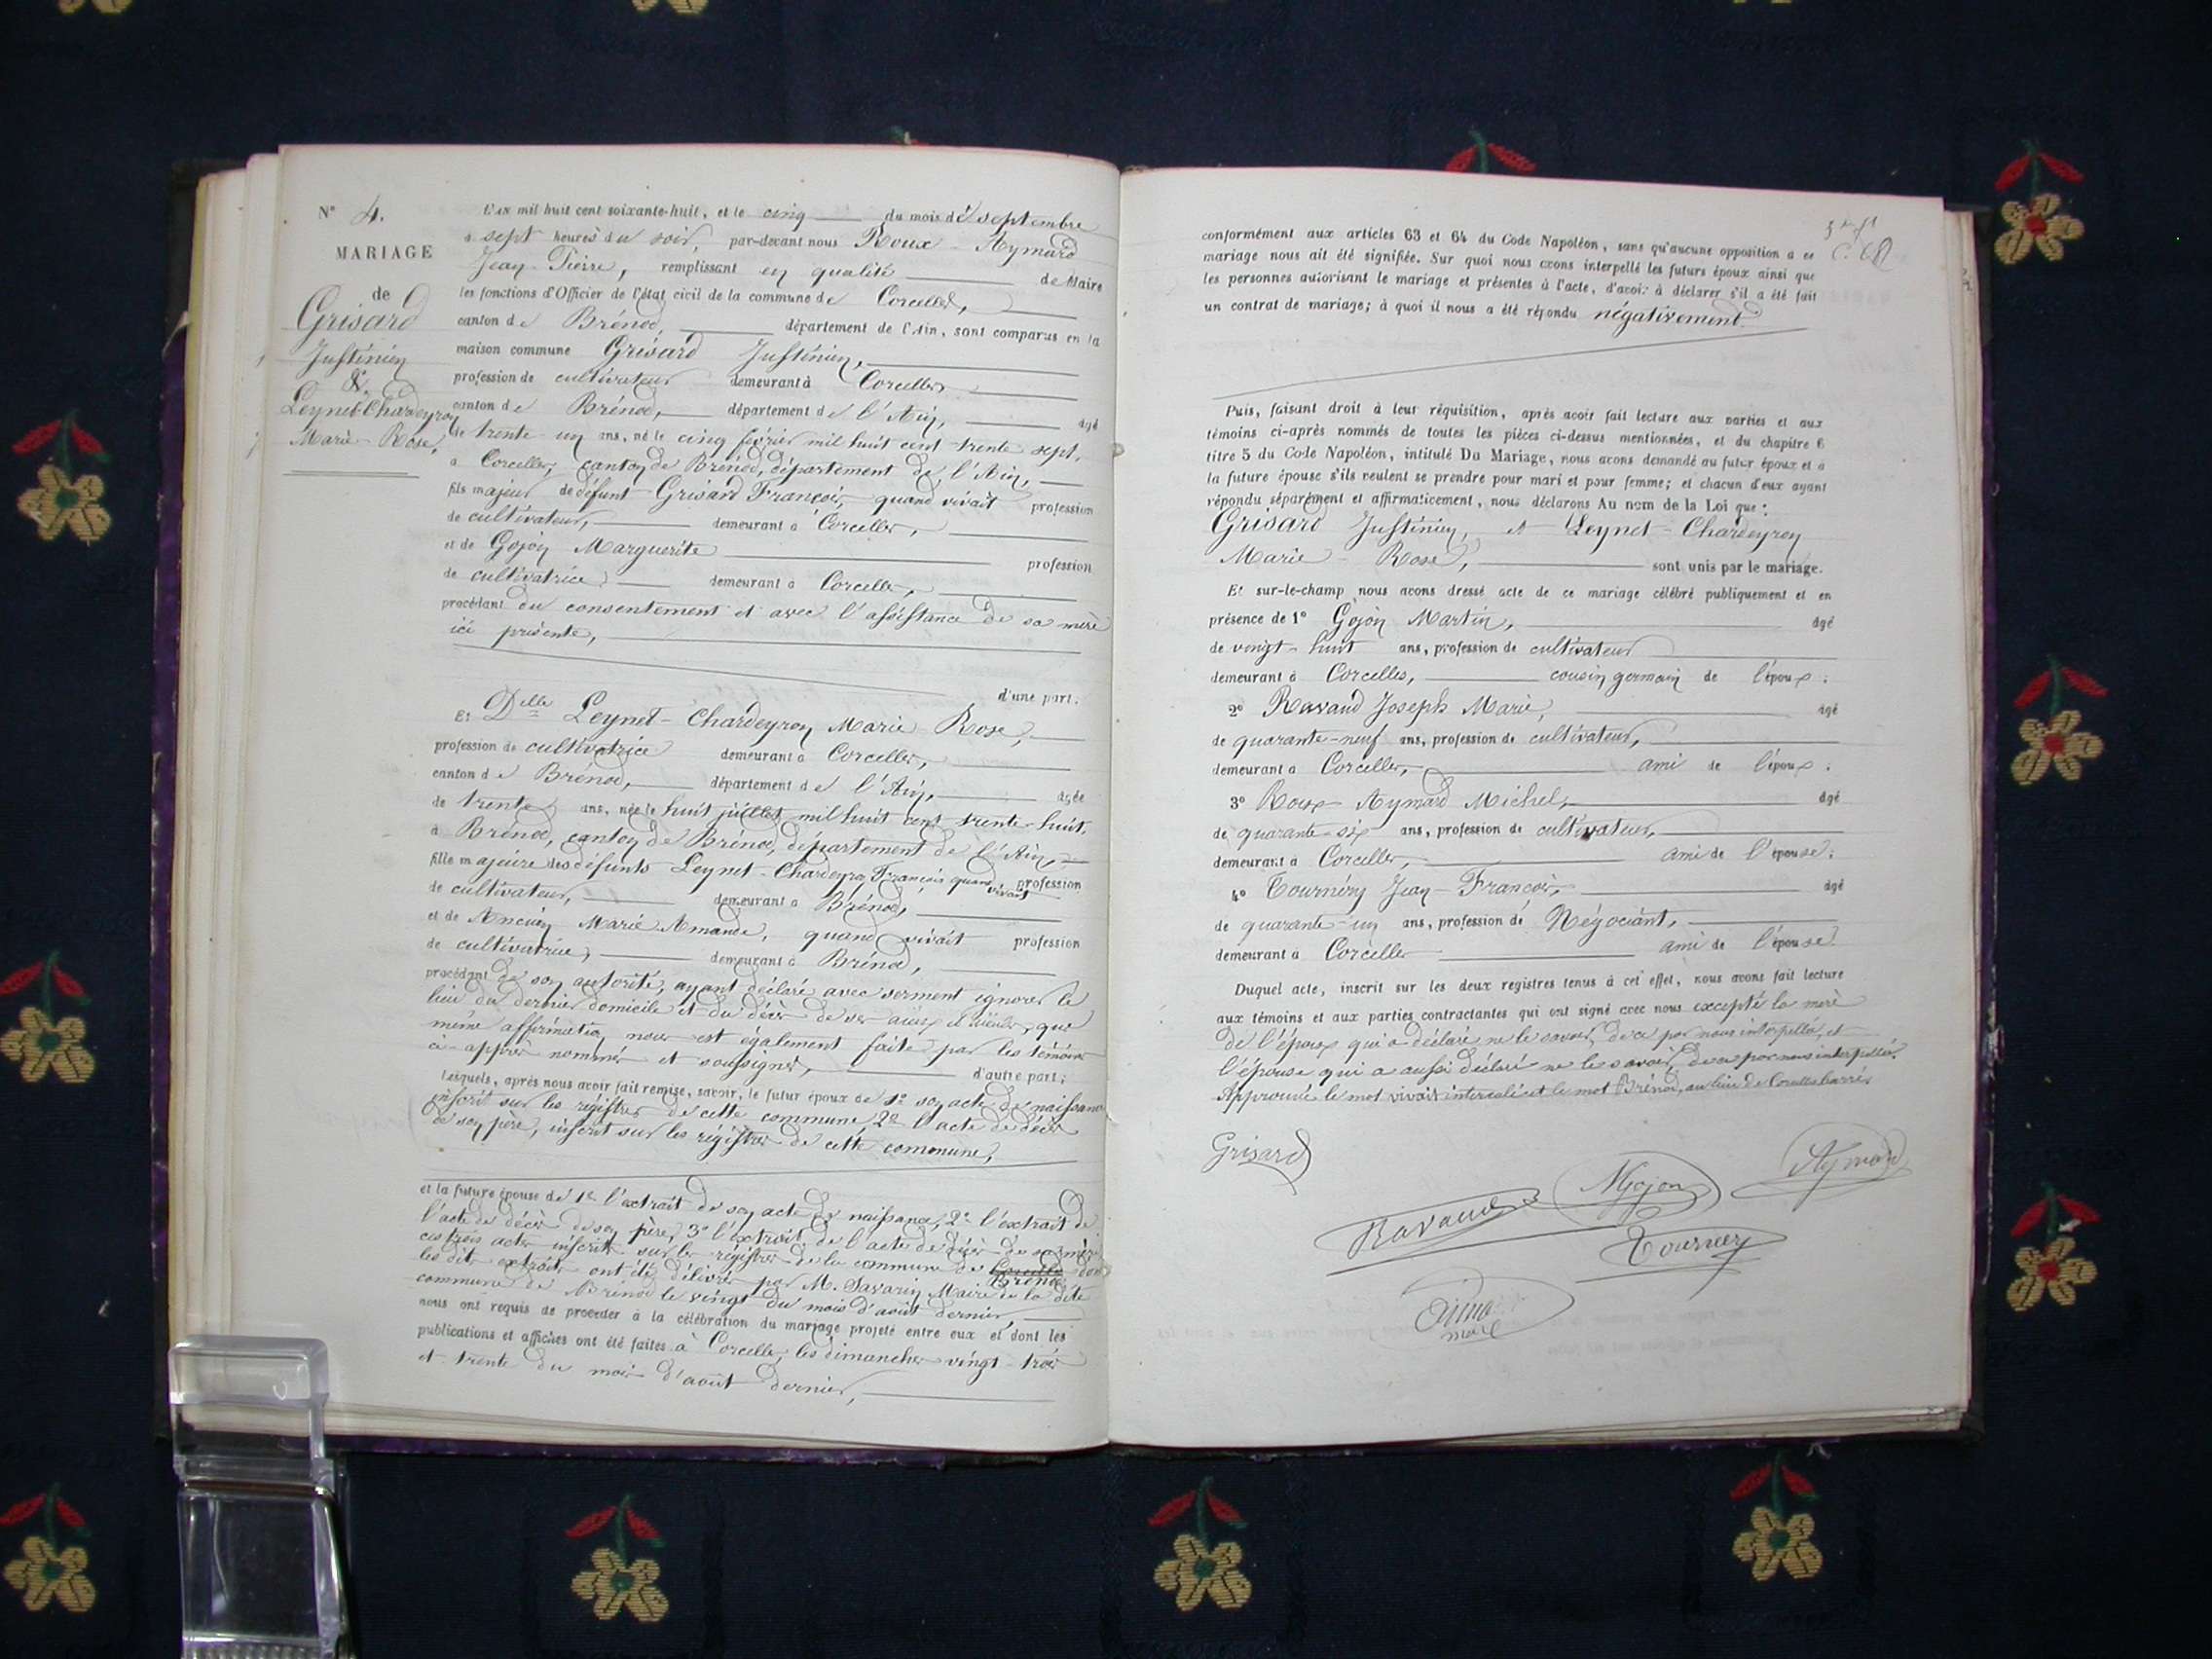 N° 4.
MARIAGE
de
Grisard
Justinien
&
Leynet-Chardeyron
Marie-Rose,
L'an mil huit cent soixante-huit, et le cinq du mois de septembre
à sept heures du soir, par-devant nous Roux-Aymard
Jean-Pierre, remplissant en qualité de Maire
les fonctions d'Officier de l'état civil de la commune de Corcelles,
canton de Brénod, département de l'Ain, sont comparus en la
maison commune Grisard Justinien,
profession de cultivateur demeurant à Corcelles
canton de Brénod, département de l'Ain, âgé
de trente-un ans, né le cinq février mil huit cent trente sept,
à Corcelles, canton de Brénod, département de l'Ain,
fils majeur de défunt Grisard François, quand vivait profession
de cultivateur, demeurant à Corcelles,
et de Gojon Marguerite profession
de cultivatrice, demeurant à Corcelles,
procédant du consentement et avec l'assistance de sa mère
ici présente,
d'une part;
Et Delle Leynet-Chardeyron Marie Rose,
profession de cultivatrice demeurant à Corcelles,
canton de Brénod, département de l'Ain, âgée
de trente ans, née le huit juillet mil huit cent trente-huit,
à Brénod, canton de Brénod, département de l'Ain,
fille majeure des défunts Leynet-Chardeyron François quand vivait profession
de cultivateur, demeurant à Brénod,
et de Ancian Marie Amande, quand vivait profession
de cultivatrice, demeurant à Brénod,
procédant de son autorité, ayant déclaré avec serment ignorer le
lieu du dernier domicile et du décès de ses aïeux et aïeules, que
même affirmation nous est également faite par les témoins
ci-après nommés et soussignés, d'autre part;
Lesquels, après nous avoir fait remise, savoir, le futur époux de 1° son acte de naissance
inscrit sur les régistres de cette commune, 2° l'acte de décès
de son père, inscrit sur les régistres de cette commune,
et la future épouse de 1° l'extrait de son acte de naissance, 2° l'extrait de
l'acte de décès de son père, 3° l'extrait de l'acte de décès de sa mère
ces trois actes inscrits sur les régistres de la commune de Corcelles Brénod dont
les dits extraits ont été délivrés par M. Savarin Maire de la dite
commune de Brénod le vingt du mois d'août dernier,
nous ont requis de procéder à la célébration du mariage projeté entre eux et dont les
publications et affiches ont été faites à Corcelles, les dimanches vingt-trois
et trente du mois d'août dernier,
conformément aux articles 63 et 64 du Code Napoléon, sans qu'aucune opposition à ce
mariage nous ait été signifiée. Sur quoi nous avons interpellé les futurs époux ainsi que
les personnes autorisant le mariage et présentes à l'acte, d'avoir à déclarer s'il a été fait
un contrat de mariage; à quoi il nous a été répondu négativement.
Puis, faisant droit à leur réquisition, après avoir fait lecture aux parties et aux
témoins ci-après nommés de toutes les pièces ci-dessus mentionnées, et du chapitre 6
titre 5 du Code Napoléon, intitulé Du Mariage, nous avons demandé au futur époux et à
la future épouse s'ils veulent se prendre pour mari et pour femme; et chacun d'eux ayant
répondu séparément et affirmativement, nous déclarons Au nom de la Loi que:
Grisard Justinien, et Leynet-Chardeyron
Marie-Rose, sont unis par le mariage.
Et sur-le-champ nous avons dressé acte de ce mariage célébré publiquement et en
présence de 1° Gojon Martin, âgé
de vingt-huit ans, profession de cultivateur
demeurant à Corcelles, cousin germain de l'époux;
2° Ravaud Joseph Marie, âgé
de quarante-neuf ans, profession de cultivateur,
demeurant à Corcelles, ami de l'époux;
3° Roux-Aymard Michel, âgé
de quarante-six ans, profession de cultivateur,
demeurant à Corcelles, ami de l'épouse;
4° Tournéry Jean-François, âgé
de quarante-un ans, profession de Négociant,
demeurant à Corcelles ami de l'épouse.
Duquel acte, inscrit sur les deux registres tenus à cet effet, nous avons fait lecture
aux témoins et aux parties contractantes qui ont signé avec nous excepté la mère
de l'époux qui a déclaré ne le savoir, de ce par nous interpellé, et
l'épouse qui a aussi déclaré ne le savoir, de ce par nous interpellée.
Approuvé le mot vivait intercalé et le mot Brénod, au lieu de Corcelles barré.
Grisard
Ravaud
MGojon
Aymard
Tournery